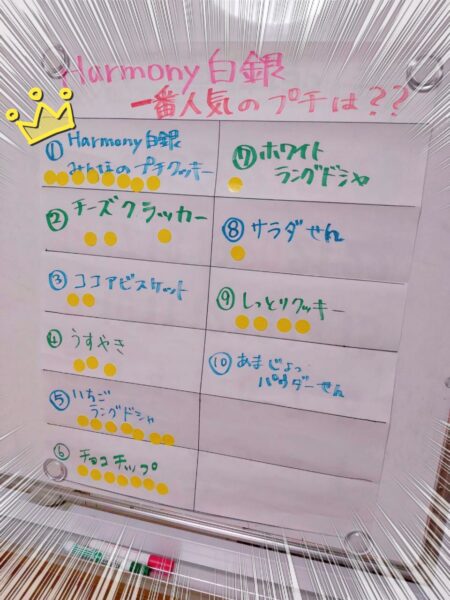 Harmony白銀
一番人気のプチは??
① Harmony白銀
みんなのプチクッキー
② チーズクラッカー
③ ココアビスケット
④ うすやき
⑤ いちご
ラングドシャ
⑥ チョコチップ
⑦ ホワイト
ラングドシャ
⑧ サラダせん
⑨ しっとりクッキー
⑩ あまじょっ
パウダーせん